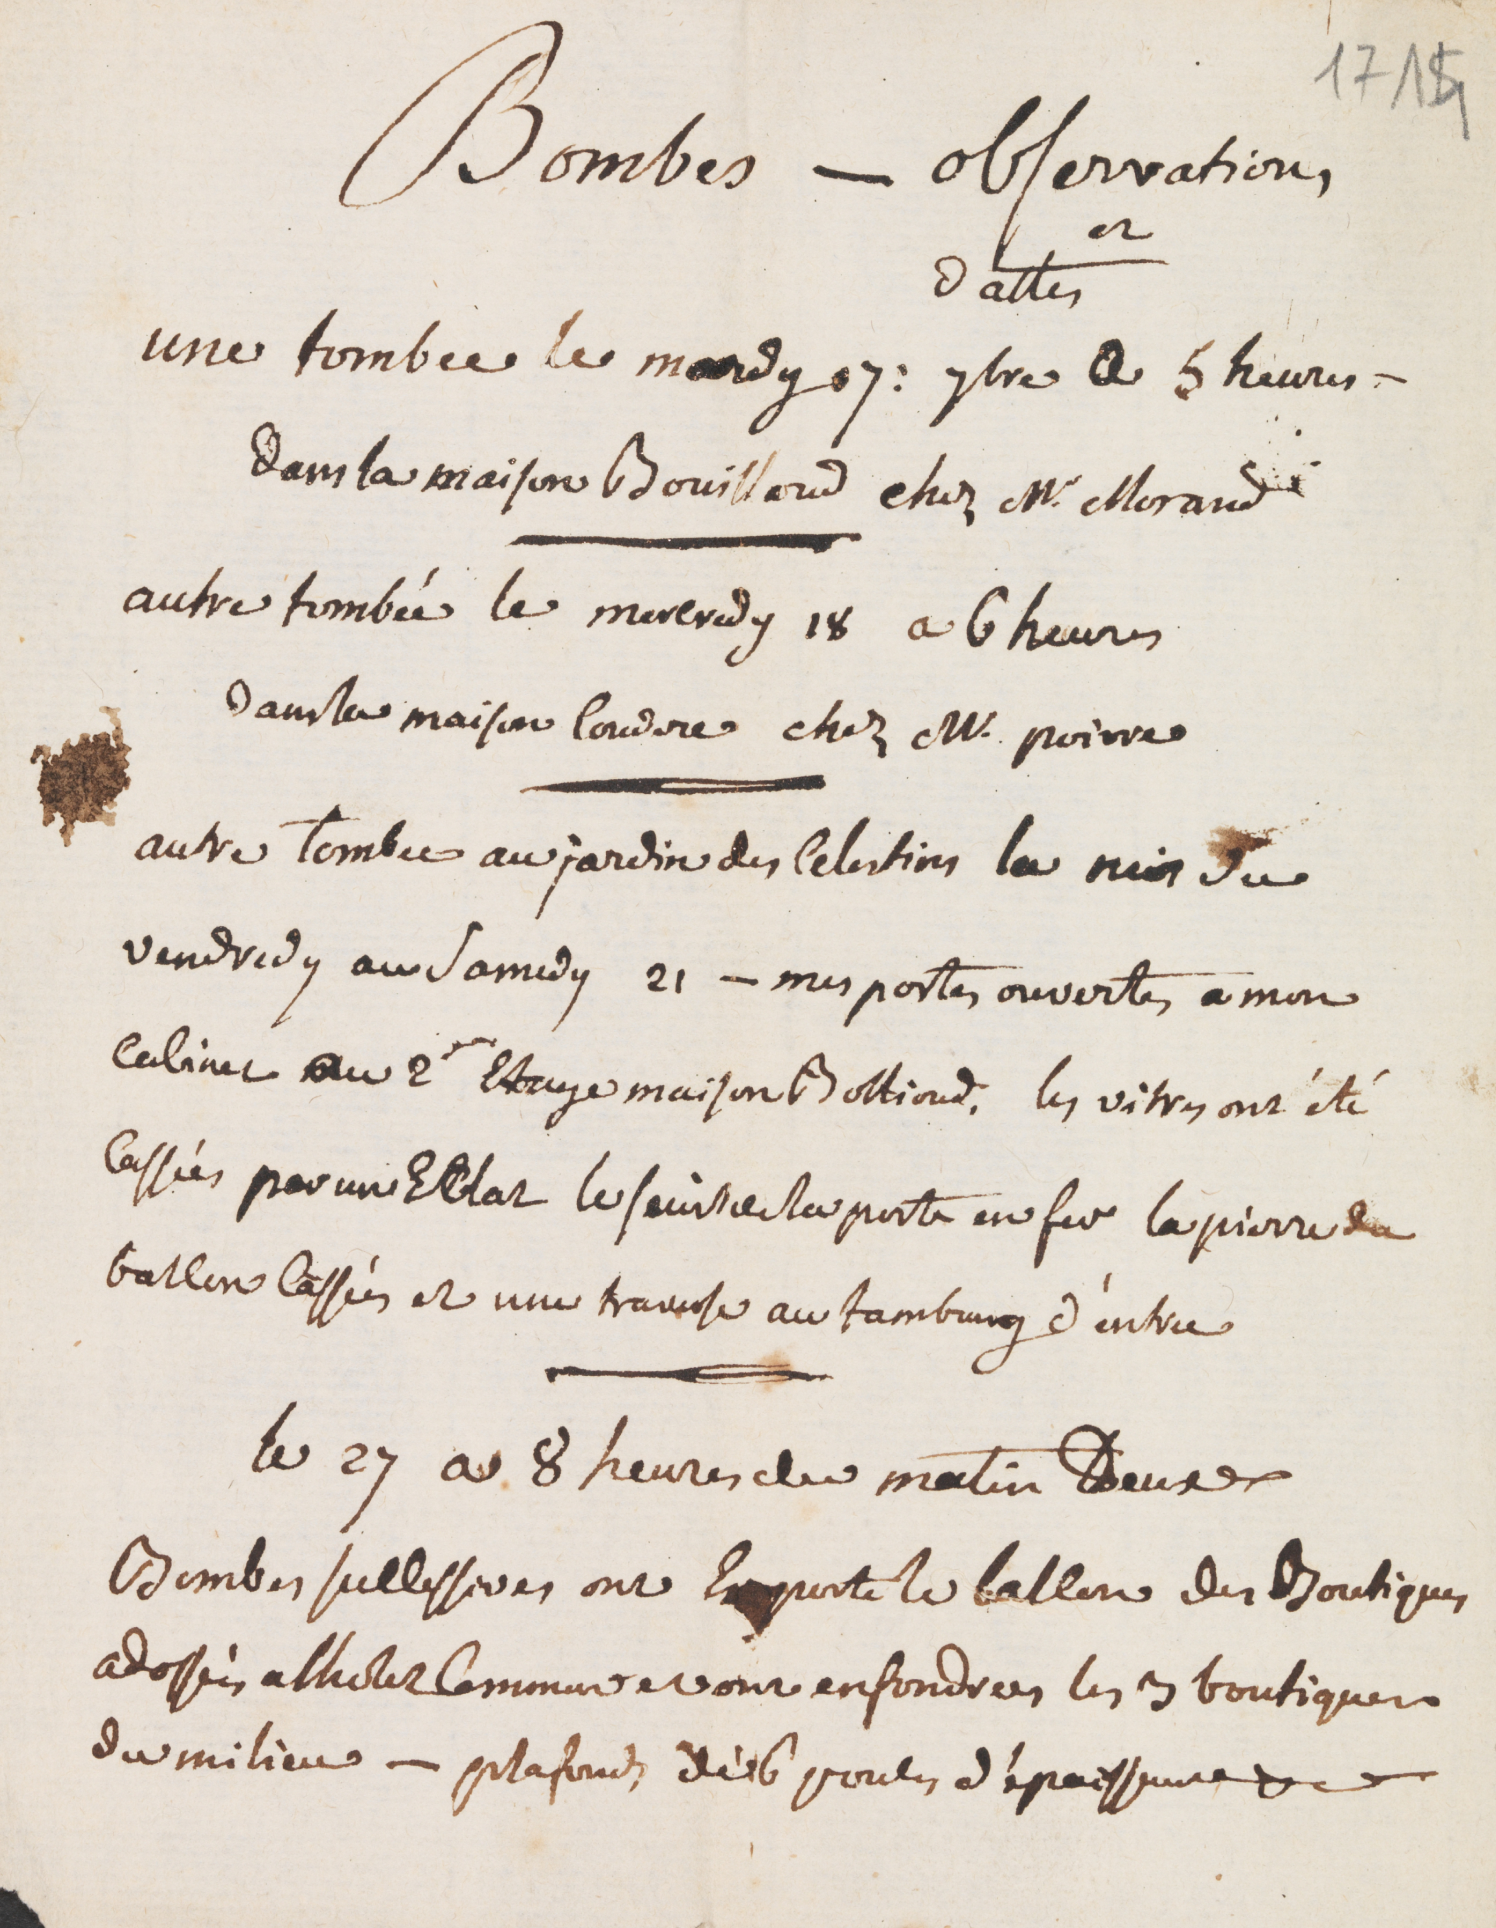 1715
Bombes — observations
et
dattes
une tombee le mardy 17: 7bre a 5 heures -
dans la maison Bouilloud chez Mr. Morand
autre tombée le mercredy 18 a 6 heures
dans la maison Coudere chez Mr. poivre
autre tombee au jardin des Celestins la nuit du
vendredy au Samedy 21 — mes portes ouvertes a mon
Cabinet au 2me Etage maison Bottioud, les vitres ont été
Cassées par un Eclat le seuil de la porte en fer la pierre du
balcon Cassées et une traverse au tambourg d'entree
le 27 a 8 heures du matin Deux
Bombes successives ont Emporté le balcon des Boutiques
adossées a l'hotel Commun et ont enfondrees les 3 boutiques
du milieu — plafonds de 6 pouces d'epaisseur